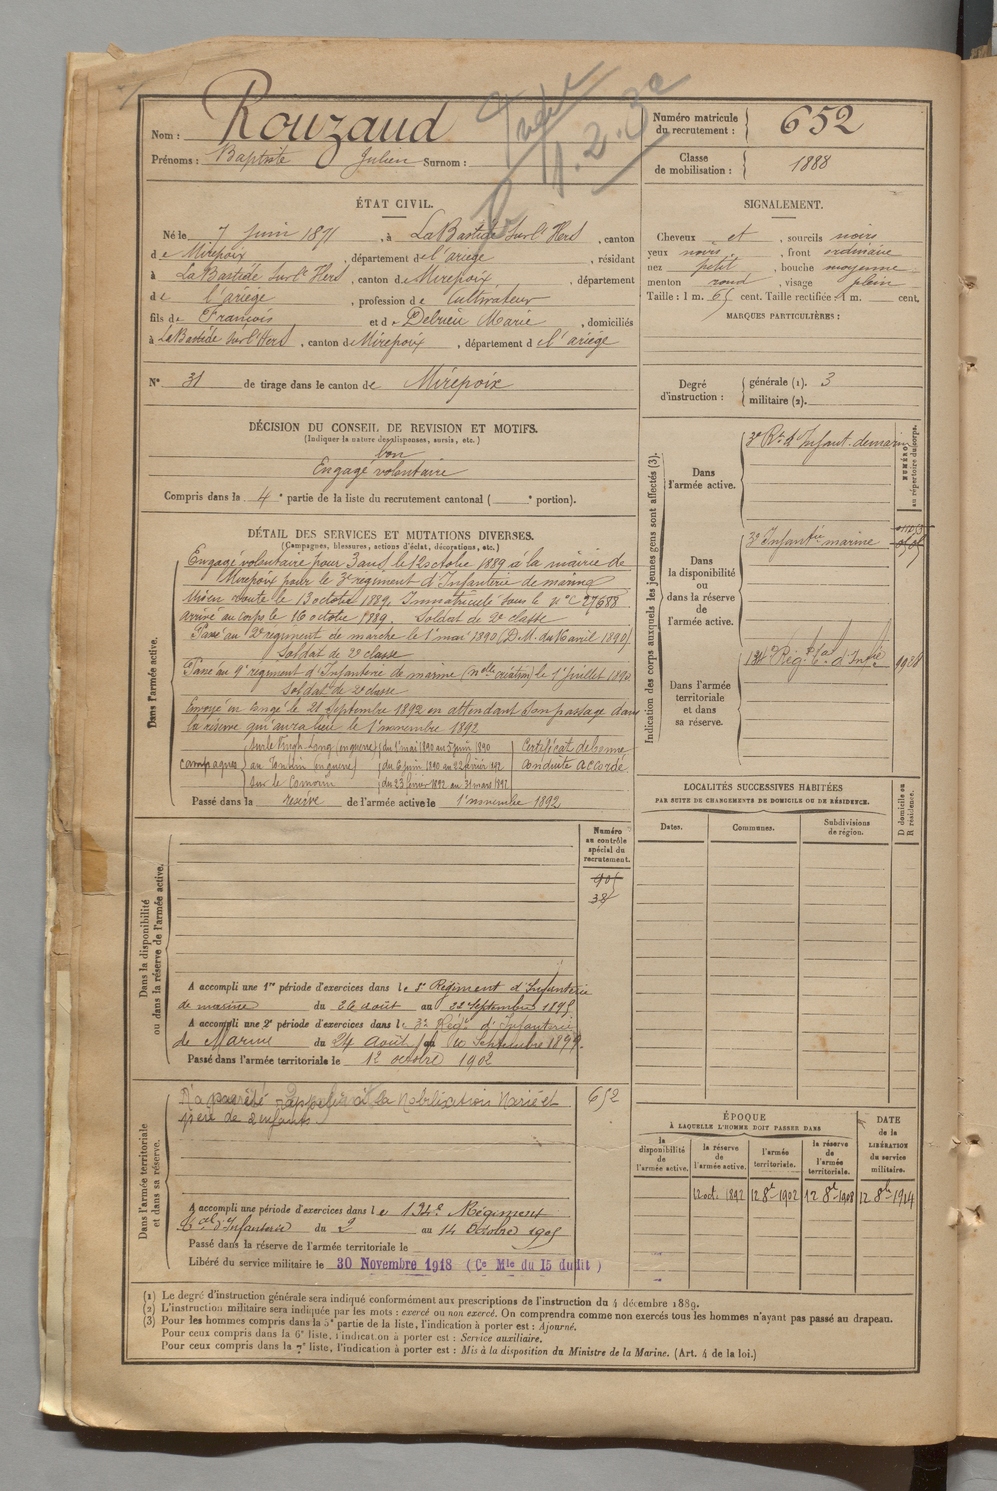 Nom : Rouzaud
Prénoms : Baptiste Julien Surnom :
Numéro matricule du recrutement : 652
Classe de mobilisation : 1888
ÉTAT CIVIL.
Né le 7 juin 1871, à LaBastide Sur l'Hers, canton
de Mirepoix, département de l'ariège, résidant
à LaBastide Sur l'Hers, canton de Mirepoix, département
de l'ariège, profession de Cultivateur
fils de François et de Delrieu Marie, domiciliés
à LaBastide sur l'Hers, canton de Mirepoix, département de l'ariège
N° 31 de tirage dans le canton de Mirepoix
SIGNALEMENT.
Cheveux et, sourcils noirs
yeux noirs, front ordinaire
nez petit, bouche moyenne
menton rond, visage plein
Taille : 1 m. 65 cent. Taille rectifiée : 1 m. cent.
MARQUES PARTICULIÈRES :
Degré d'instruction : générale (1). 3
militaire (2).
DÉCISION DU CONSEIL DE REVISION ET MOTIFS.
(Indiquer la nature des dispenses, sursis, etc.)
bon
Engagé volontaire
Compris dans la 4e partie de la liste du recrutement cantonal ( e portion).
DÉTAIL DES SERVICES ET MUTATIONS DIVERSES.
(Campagnes, blessures, actions d'éclat, décorations, etc.)
Dans l'armée active.
Engagé volontaire pour 3 ans le 12 octobre 1889 à la mairie de
Mirepoix pour le 3e régiment d'Infanterie de marine
Mis en route le 13 octobre 1889. Immatriculé sous le n° C 27688
arrivé au corps le 16 octobre 1889. Soldat de 2e classe
Passé au 2e régiment de marche le 1er mai 1890 (D.M. du 16 avril 1890)
Soldat de 2e classe
Passé au 9e régiment d'Infanterie de marine (nelle création) le 1er Juillet 1890
Soldat de 2e classe
Envoyé en Congé le 21 Septembre 1892 en attendant son passage dans
la réserve qui aura lieu le 1er novembre 1892
campagnes
Sur le Vingh-Long (en guerre) du 1er mai 1890 au 5 juin 1890
au Tonkin (en guerre) du 6 juin 1890 au 22 février 1892
Sur le Comorin du 23 février 1892 au 31 mars 1892
Certificat de bonne
conduite accordé
Passé dans la réserve de l'armée active le 1er novembre 1892
Indication des corps auxquels les jeunes gens sont affectés (3).
NUMÉRO au répertoire du corps.
Dans l'armée active.
3e Rt d'Infant. de marine
Dans la disponibilité ou dans la réserve de l'armée active.
3e Infanterie marine
Dans l'armée territoriale et dans sa réserve.
134e Régt tal d'Infie 1928
LOCALITÉS SUCCESSIVES HABITÉES
PAR SUITE DE CHANGEMENTS DE DOMICILE OU DE RÉSIDENCE.
Dates. Communes. Subdivisions de région.
D domicile ou R résidence.
Dans la disponibilité ou dans la réserve de l'armée active.
Numéro au contrôle spécial du recrutement.
905
38
A accompli une 1re période d'exercices dans le 8e Régiment d'Infanterie
de marine du 26 août au 22 Septembre 1895
A accompli une 2e période d'exercices dans le 3e Régt d'Infanterie
de Marine du 24 Août au Septembre 1899.
Passé dans l'armée territoriale le 12 octobre 1902
Dans l'armée territoriale et dans sa réserve.
652
à la Mobilisation Marié et
père de 2 enfants
A accompli une période d'exercices dans le 134e Régiment
tal d'Infanterie du 2 au 14 Octobre 1905
Passé dans la réserve de l'armée territoriale le
Libéré du service militaire le 30 Novembre 1918 (Ce Mle du 15 dudit)
ÉPOQUE
À LAQUELLE L'HOMME DOIT PASSER DANS
la disponibilité de l'armée active.
la réserve de l'armée active.
l'armée territoriale.
la réserve de l'armée territoriale.
DATE de la LIBÉRATION du service militaire.
12 oct. 1892 12 8bre 1902 12 8bre 1908 12 8bre 1914
(1) Le degré d'instruction générale sera indiqué conformément aux prescriptions de l'instruction du 4 décembre 1889.
(2) L'instruction militaire sera indiquée par les mots : exercé ou non exercé. On comprendra comme non exercés tous les hommes n'ayant pas passé au drapeau.
(3) Pour les hommes compris dans la 5e partie de la liste, l'indication à porter est : Ajourné.
Pour ceux compris dans la 6e liste, l'indication à porter est : Service auxiliaire.
Pour ceux compris dans la 7e liste, l'indication à porter est : Mis à la disposition du Ministre de la Marine. (Art. 4 de la loi.)